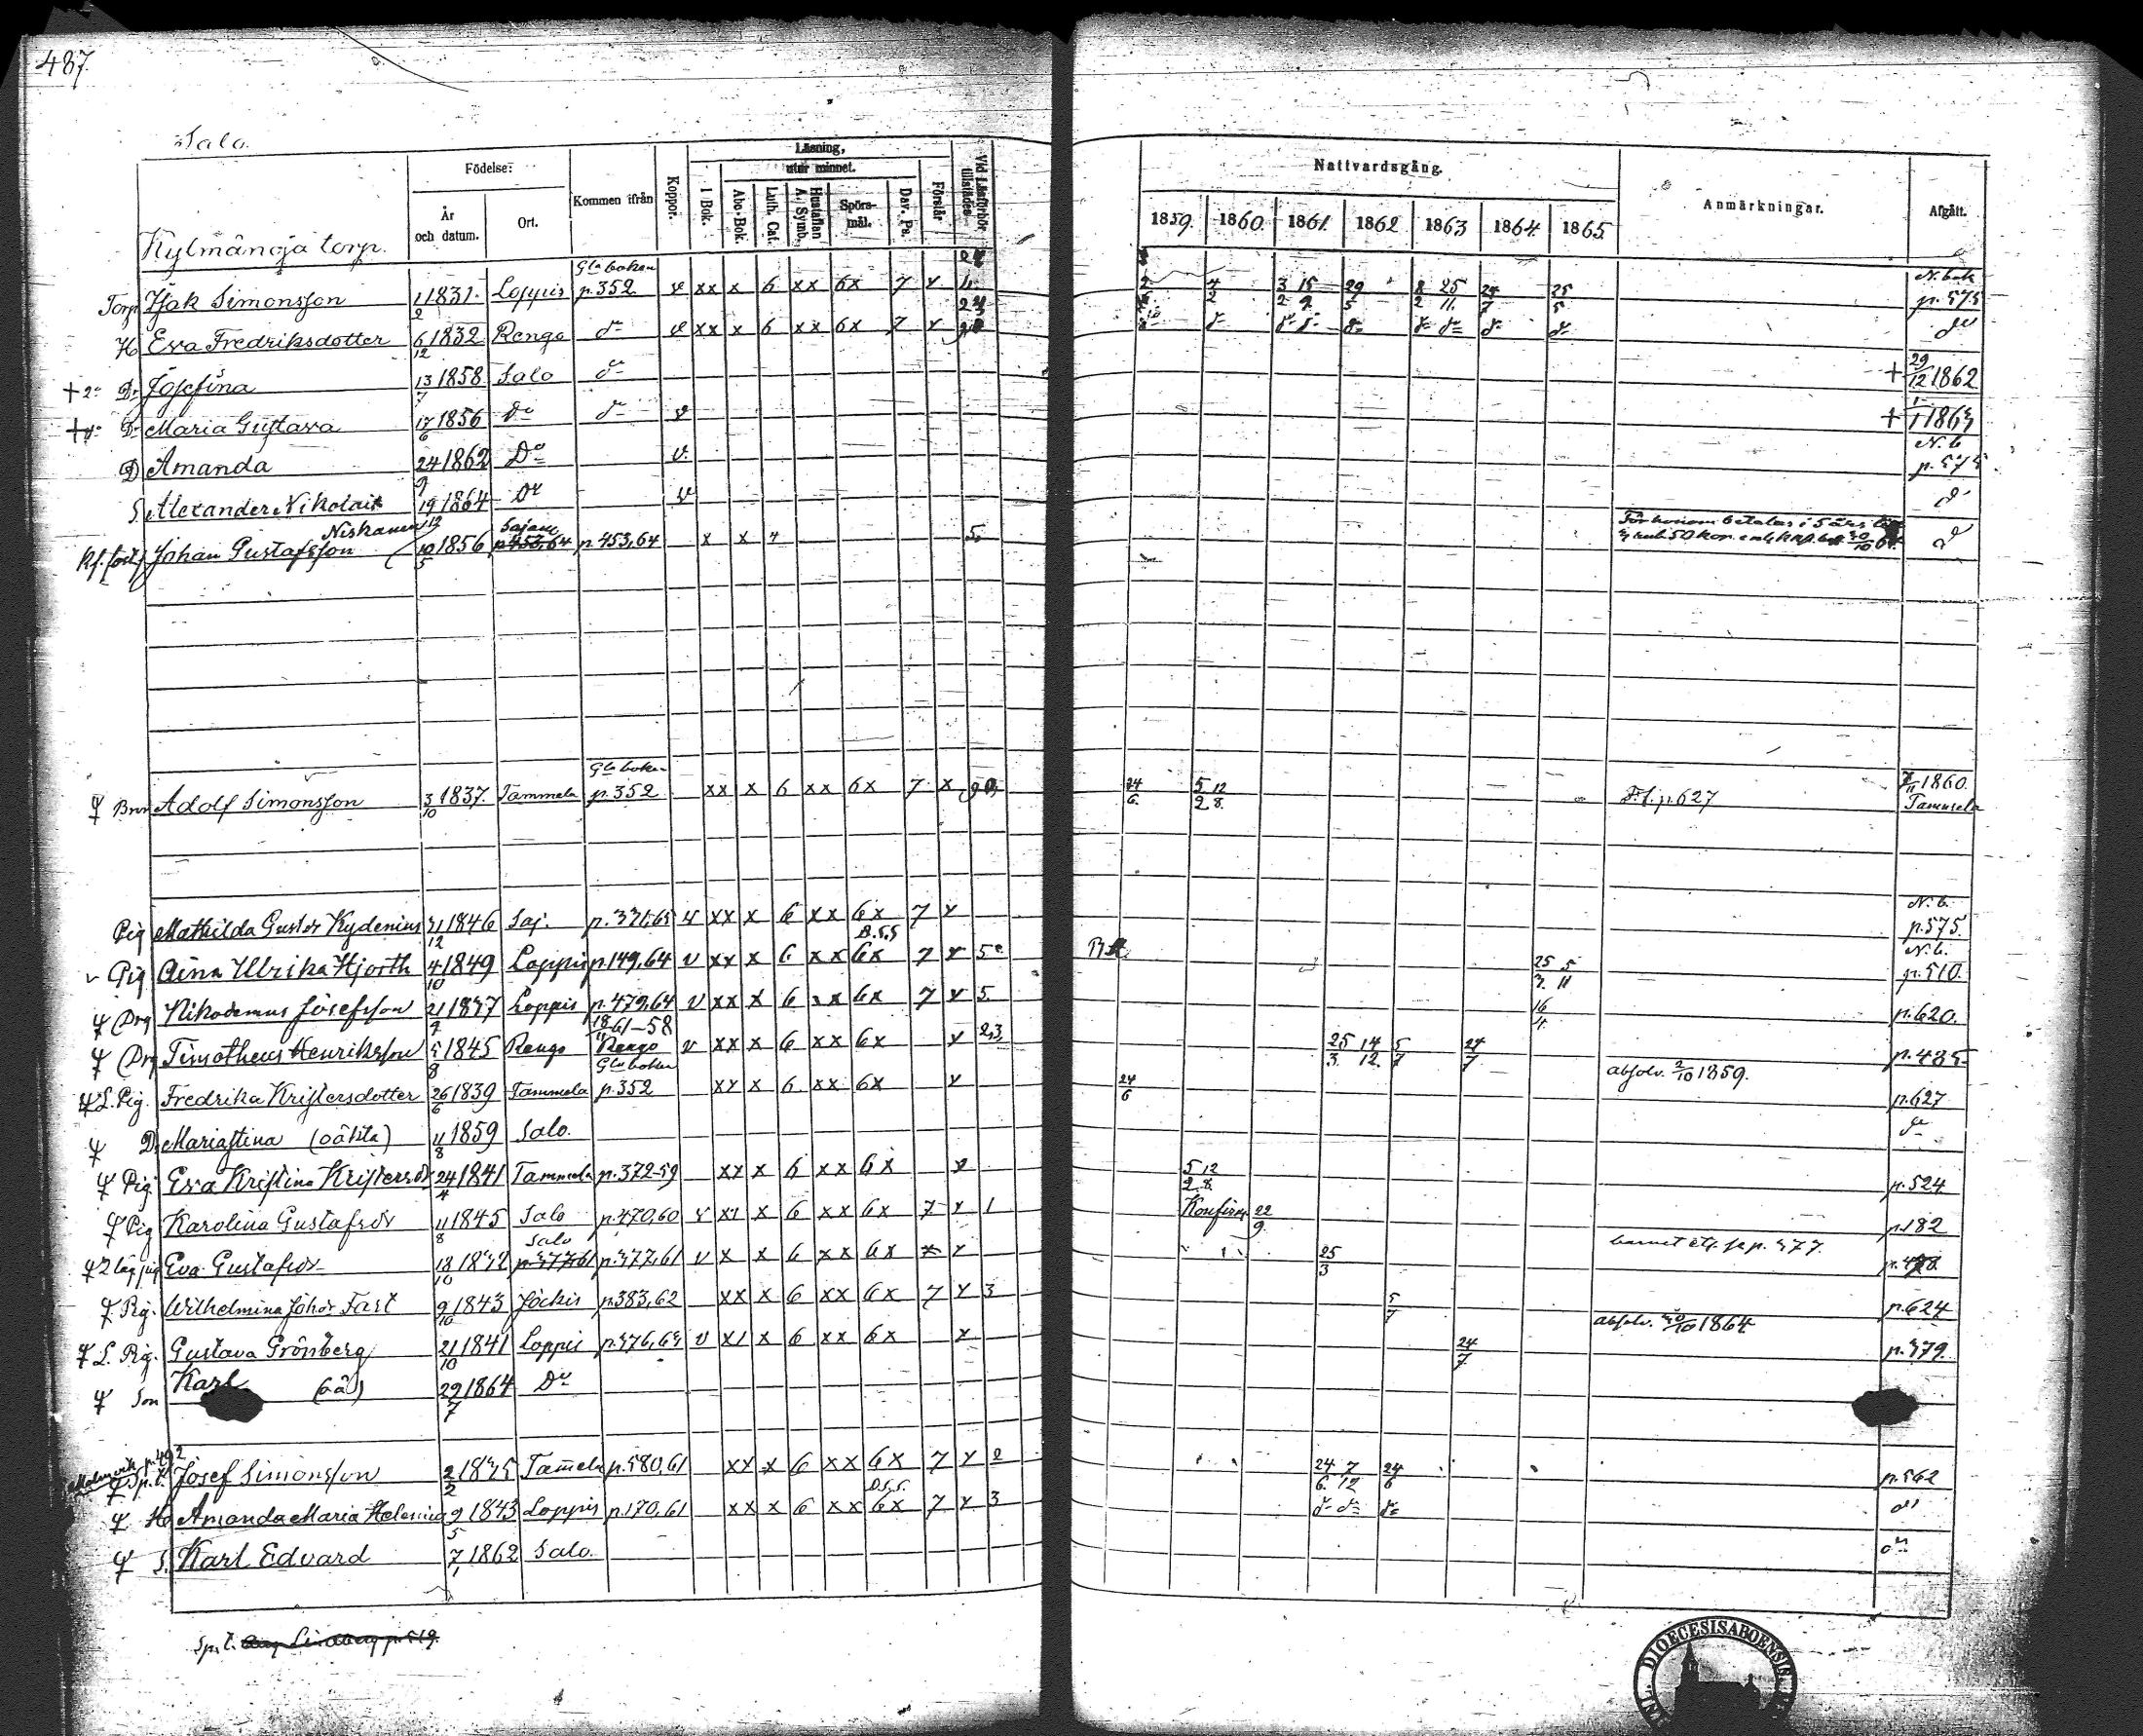 487.
Salo.
Kylmänoja torp.
Födelse:
År och datum.
Ort.
Kommen ifrån
Koppor.
Läsning,
I Bok.
utur minnet.
Abc-Bok.
Luth. Cat.
Hustaflan A. Symb.
Spörsmål.
Dav. Ps.
Förstår
Vid Läsförhör tillstädes.
Nattvardsgång.
1859. 1860. 1861. 1862 1863 1864. 1865.
Anmärkningar.
Afgått.
Torp Isak Simonsson 1/2 1831. Loppis Gla boken p. 352 v xx x 6 xx 6x 7 x 4/2 3/2 15/9 29/5 8/2 25/11 24/7 25/5 N. bok p. 575
H Eva Fredriksdotter 6/12 1832 Rengo do v xx x 6 xx 6x 7 x do do do do do do do do
+ D. Josefina 13/7 1858 Salo do + 29/12 1862
+ D Maria Gustava 17/6 1856 do do v + 1863
D Amanda 24/9 1862 Do v. N. b. p. 575
S. Alexander Nikolai 19/12 1864 Do v do
Johan Gustafsson Niskanen 10/5 1856 Sajans p 453,64 p. 453,64 x x 5. För honom betalas i 5 års 50 kop. do
Bror Adolf Simonsson 3/10 1837. Tammela Gla boken p. 352 xx x 6 xx 6x 7 x 24/6. 5/2 12/8. F. f. p. 627 7/11 1860. Tammela
Pig Mathilda Gustdr Kydenius 1846 Saj. p. 371,65 v xx x 6 xx 6x 7 x N. b. p. 575.
Pig Aina Ulrika Hjorth 4/10 1849 Loppis p. 149,64 v xx x 6 xx 6x 7 x 5 25/3. 5/11 N. b. p. 510.
Drg Nikodemus Josefsson 21 1847 Loppis p. 479,64 v xx x 6 xx 6x 7 x 5. 16/4. p. 620.
Drg Timotheus Henriksson 5/8 1845 Rengo 1861-58 Rengo v xx x 6 xx 6x x 2,3, 25/3. 14/12. 5/7 24/7 p. 485
L. Pig. Fredrika Kristersdotter 26/6 1839 Tammela Gla boken p. 352 xx x 6 xx 6x x 24/6 absolv. 2/10 1859. p. 627
D. Mariastina (oäkta) 11/8 1859 Salo. do
Pig Eva Kristina Kristersdr 24/4 1841 Tammela p. 372-59 xx x 6 xx 6x x 5/2 12/8. p. 524
Pig Karolina Gustafsdr 11/8 1845 Salo p. 470,60 v xx x 6 xx 6x 7 x 1 Konfirm. 22/9. p. 182
Eva Gustafsdr 18/10 Salo p. 477,61 v x x 6 xx 6x x x 25/3 barnet p. 477.
Pig. Wilhelmina Johdr Fast 9/10 1843 Jockis p. 383,62 xx x 6 xx 6x 7 x 3 5/7 p. 624
L. Pig. Gustava Grönberg 21/10 1841 Loppis v x x 6 xx 6x x 24/7. absolv. 1864 p. 479.
Son Karl (oä) 29/7 1864 Do
p. 492
Josef Simonsson 2/2 Tamela p. 580,61 xx x 6 xx 6x 7 x 2 24/6. 7/12 24/6 p. 562
Ho Amanda Maria Helenius 9/5 1843 Loppis p. 170,61 xx x 6 xx 6x 7 x 3 do do do do
S. Karl Edvard 7/1 1862 Salo. do
Sp. t. Lindberg p. 519.
DIOECESIS ABOENSIS